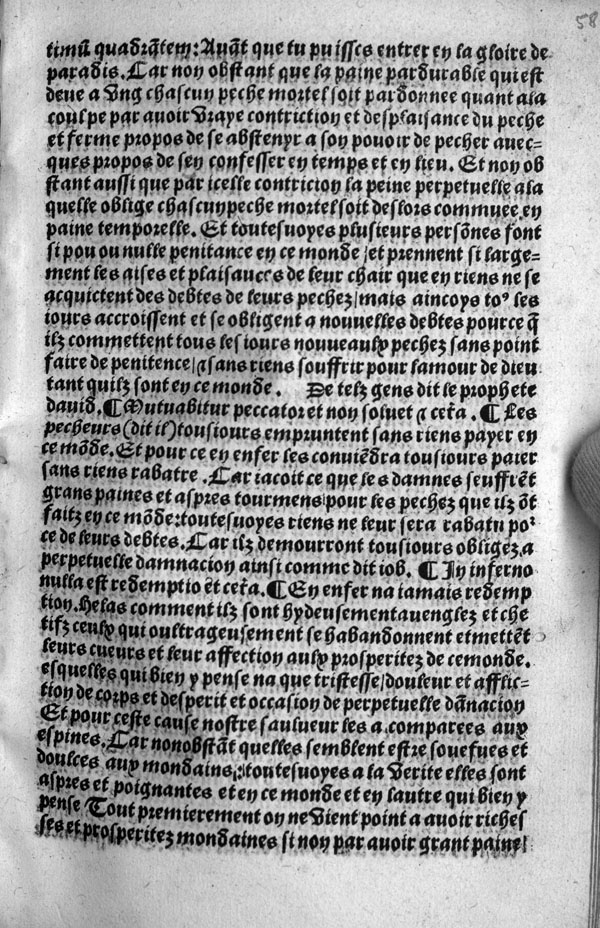 58
timū quadrātem: Auāt que tu puisses entrer en la gloire de
paradis. Car non obstant que la paine pardurable qui est
deue a vng chascun peche mortel soit pardonnee quant a la
coulpe par auoir vraye contriction et desplaisance du peche
et ferme propos de se abstenyr a son pouoir de pecher auec-
ques propos de sen confesser en temps et en lieu. Et non ob
stant aussi que par icelle contricion la peine perpetuelle a la
quelle oblige chascun peche mortel soit deslors commuee en
paine temporelle. Et toutesuoyes plusieurs persōnes font
si pou ou nulle penitance en ce monde / et prennent si large-
ment les aises et plaisances de leur chair que en riens ne se
acquictent des debtes de leurs pechez / mais aincoys toꝰ les
iours accroissent et se obligent a nouuelles debtes pource q̄
ilz commettent tous les iours nouueaulx pechez sans point
faire de penitence / ⁊ sans riens souffrir pour lamour de dieu
tant quilz sont en ce monde. De telz gens dit le prophete
dauid. ¶ Mutuabitur peccator et non soluet ⁊ cet̄a. ¶ Les
pecheurs (dit il) tousiours empruntent sans riens payer en
ce mōde. Et pour ce en enfer les conuiēdra tousiours paier
sans riens rabatre. Car iacoit ce que les damnes seuffrēt
grans paines et aspres tourmens pour les pechez que ilz ōt
faitz en ce mōde: toutesuoyes riens ne leur sera rabatu poꝛ̄
ce de leurs debtes. Car ilz demourront tousiours obligez a
perpetuelle damnacion ainsi comme dit iob. ¶ In inferno
nulla est redemptio ēt cet̄a. ¶ En enfer na iamais redemp
tion. Helas comment ilz sont hydeusement auenglez et che
tifz ceulx qui oultrageusement se habandonnent et mettēt
leurs cueurs et leur affection aulx prosperitez de ce monde.
esquelles qui bien y pense na que tristesse / douleur et afflic-
tion de corps et desperit et occasion de perpetuelle dānacion
Et pour ceste cause nostre saulueur les a comparees aux
espines. Car nonobstāt quelles semblent estre souefues et
doulces aux mondains: toutesuoyes a la verite elles sont
aspres et poignantes et en ce monde et en lautre qui bien y
pense Tout premierement on ne vient point a auoir riches
ses et prosperitez mondaines si non par auoir grant paine /